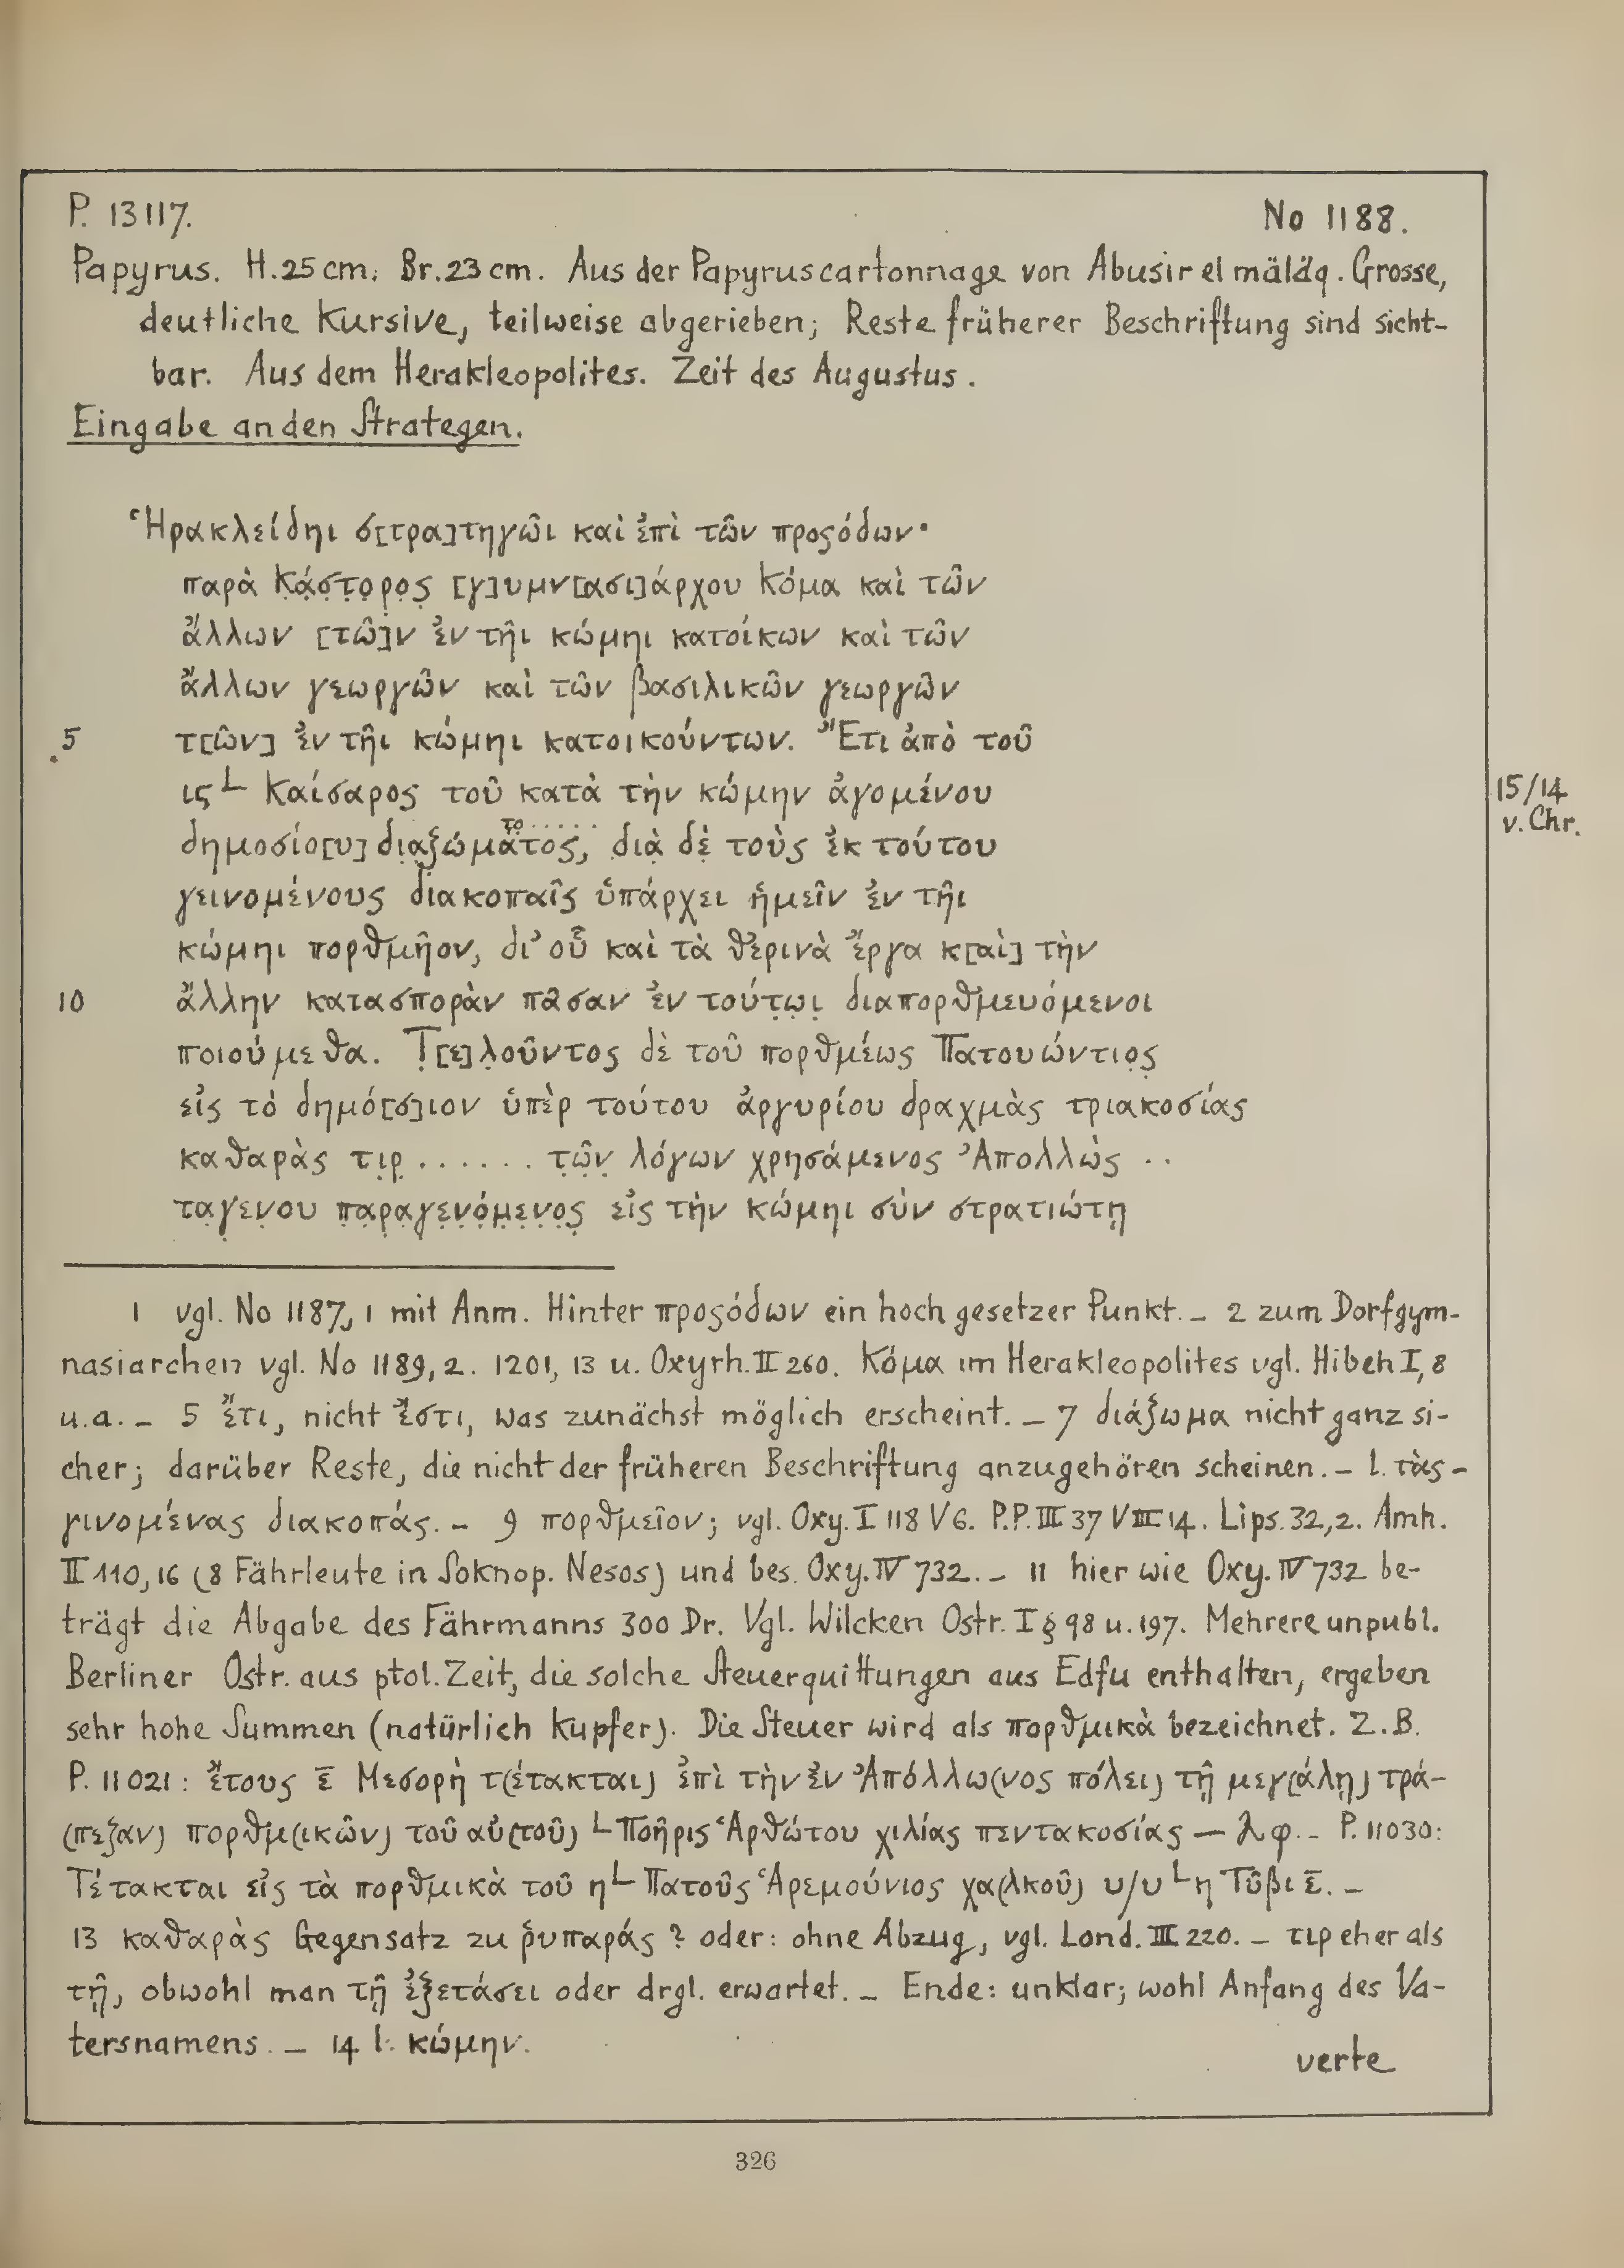 P. 13117. No 1188.
Papyrus. H.25cm. Br.23cm. Aus der Papyruscartonnage von Abusir el mäläq. Grosse,
deutliche Kursive, teilweise abgerieben; Reste früherer Beschriftung sind sicht-
bar. Aus dem Herakleopolites. Zeit des Augustus.
Eingabe an den Strategen.
Ἡρακλείδηι σ[τρα]τηγῶι καὶ ἐπὶ τῶν προςόδων·
παρὰ Κ̣ά̣σ̣τ̣ο̣ρ̣ο̣ς̣ [γ]υμν[ασι]άρχου Κόμα καὶ τῶν
ἄλλων [τῶ]ν ἐν τῆι κώμηι κατοίκων καὶ τῶν
ἄλλων γεωργῶν καὶ τῶν βασιλικῶν γεωργῶν
5 τ[ῶν] ἐν τῆι κώμηι κατοικούντων. Ἔτι ἀπὸ τοῦ
ις L Καίσαρος τοῦ κατὰ τὴν κώμην ἀγομένου 15/14 v. Chr.
το.....
δημοσίο[υ] δι̣α̣ξ̣ώμα̣τος̣, δι̣ὰ δὲ̣ τοὺς ἐκ τούτου
γεινομένους διακοπαῖς ὑπάρχει ἡμεῖν ἐν τῆι
κώμηι πορθμῆον, δι' οὗ καὶ τὰ θερινὰ ἔργα κ[αὶ] τὴν
10 ἄλλην κατασπορὰν πᾶσαν ἐν τούτ̣ω̣ι̣ διαπορθμευόμενοι
ποιούμεθα. Τ̣[ε]λ̣οῦντος δὲ τοῦ πορθμέως Πατουώντιο̣ς̣
εἰς τὸ δημό[σ]ιον ὑπὲρ τούτου ἀργυρίου δραχμὰς τριακοσίας
καθαρὰς τι̣ρ̣ ...... τ̣ῶ̣ν̣ λόγων χρησάμενος Ἀπολλὼς ..
τα̣γεν̣ου π̣α̣ρ̣α̣γ̣ε̣ν̣ό̣μ̣ε̣ν̣ο̣ς̣ εἰς τὴν κώμηι σὺν στρατιώτῃ
1 vgl. No 1187, 1 mit Anm. Hinter προςόδων ein hoch gesetzer Punkt. – 2 zum Dorfgym-
nasiarchen vgl. No 1189, 2. 1201, 13 u. Oxyrh. II 260. Κόμα im Herakleopolites vgl. Hibeh I, 8
u.a. – 5 ἔτι, nicht ἔστι, was zunächst möglich erscheint. – 7 διάξωμα nicht ganz si-
cher; darüber Reste, die nicht der früheren Beschriftung anzugehören scheinen. – l. τὰς –
γινομένας διακοπάς. – 9 πορθμεῖον; vgl. Oxy. I 118 V 6. P.P. III 37 VIII 14. Lips. 32, 2. Amh.
II 110, 16 (8 Fährleute in Soknop. Nesos) und bes. Oxy. IV 732. – 11 hier wie Oxy. IV 732 be-
trägt die Abgabe des Fährmanns 300 Dr. Vgl. Wilcken Ostr. I § 98 u. 197. Mehrere unpubl.
Berliner Ostr. aus ptol. Zeit, die solche Steuerquittungen aus Edfu enthalten, ergeben
sehr hohe Summen (natürlich Kupfer). Die Steuer wird als πορθμικὰ bezeichnet. Z.B.
P. 11021: ἔτους ε̅ Μεσορὴ τ(έτακται) ἐπὶ τὴν ἐν Ἀπόλλω(νος πόλει) τῇ μεγ(άλῃ) τρά-
(πεζαν) πορθμ(ικῶν) τοῦ αὐ(τοῦ) L Ποῆρις Ἁρθώτου χιλίας πεντακοσίας – λφ. – P. 11030:
Τέτακται εἰς τὰ πορθμικὰ τοῦ η L Πατοῦς Ἁρεμούνιος χα(λκοῦ) υ/υ L η Τῦβι ε̅. –
13 καθαρὰς Gegensatz zu ῥυπαράς? oder: ohne Abzug, vgl. Lond. III 220. – τιρ eher als
τῇ, obwohl man τῇ ἐξετάσει oder drgl. erwartet. – Ende: unklar; wohl Anfang des Va-
tersnamens. – 14 l. κώμην.
verte
326